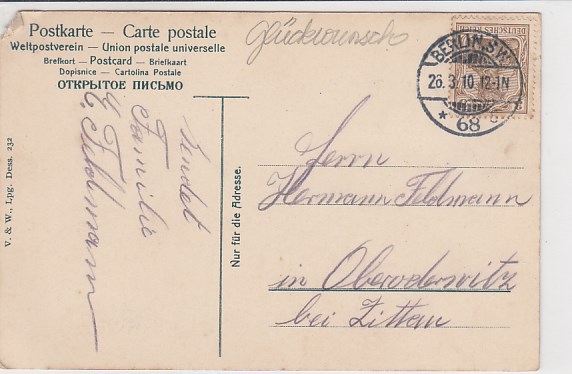 Postkarte — Carte postale
Weltpostverein — Union postale universelle
Brefkort — Postcard — Briefkaart
Dopisnice — Cartolina Postale
ОТКРЫТОЕ ПИСЬМО
Glückwunsch
DEUTSCHES REICH
BERLIN. S.W.
26.3.10.12-1N
* 68
V. & W., Lpg. Dess. 232
sendet
Familie
Feldmann
Nur für die Adresse.
Herrn
Hermann Feldmann
in Oberoderwitz
bei Zittau